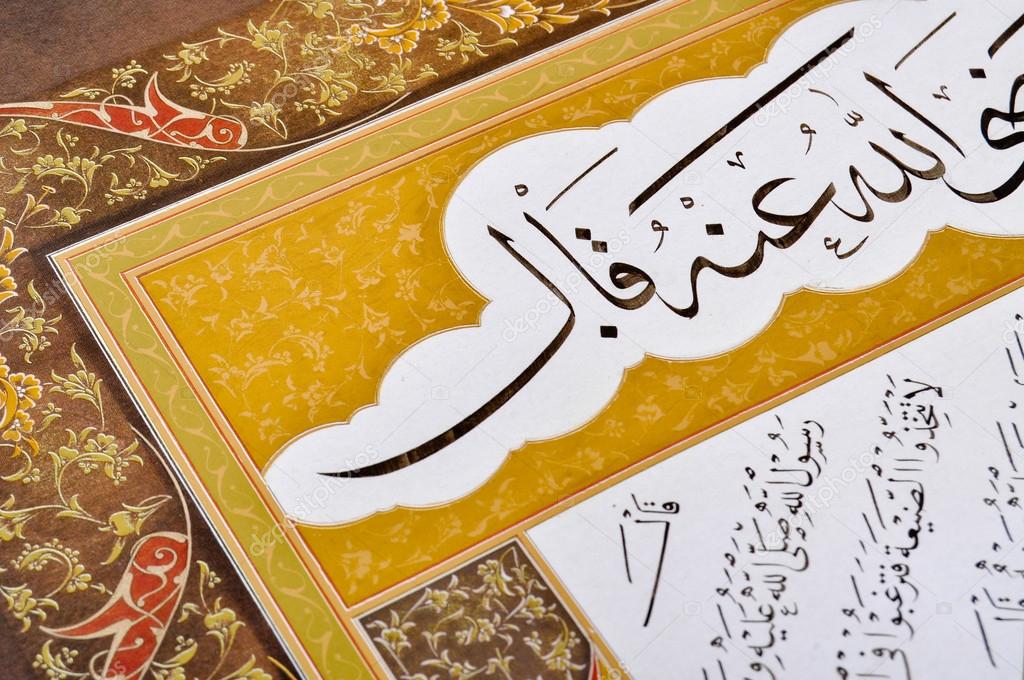 ضى اللّٰه عنه قال
قَالَ
رَسُولُ اللّٰهِ صَلَّى اللّٰهُ عَلَيْهِ وَ
لَا تَتَّخِذُوا الضَّيْعَةَ فَتَرْغَبُوا فِى
قَالَ
depositphotos